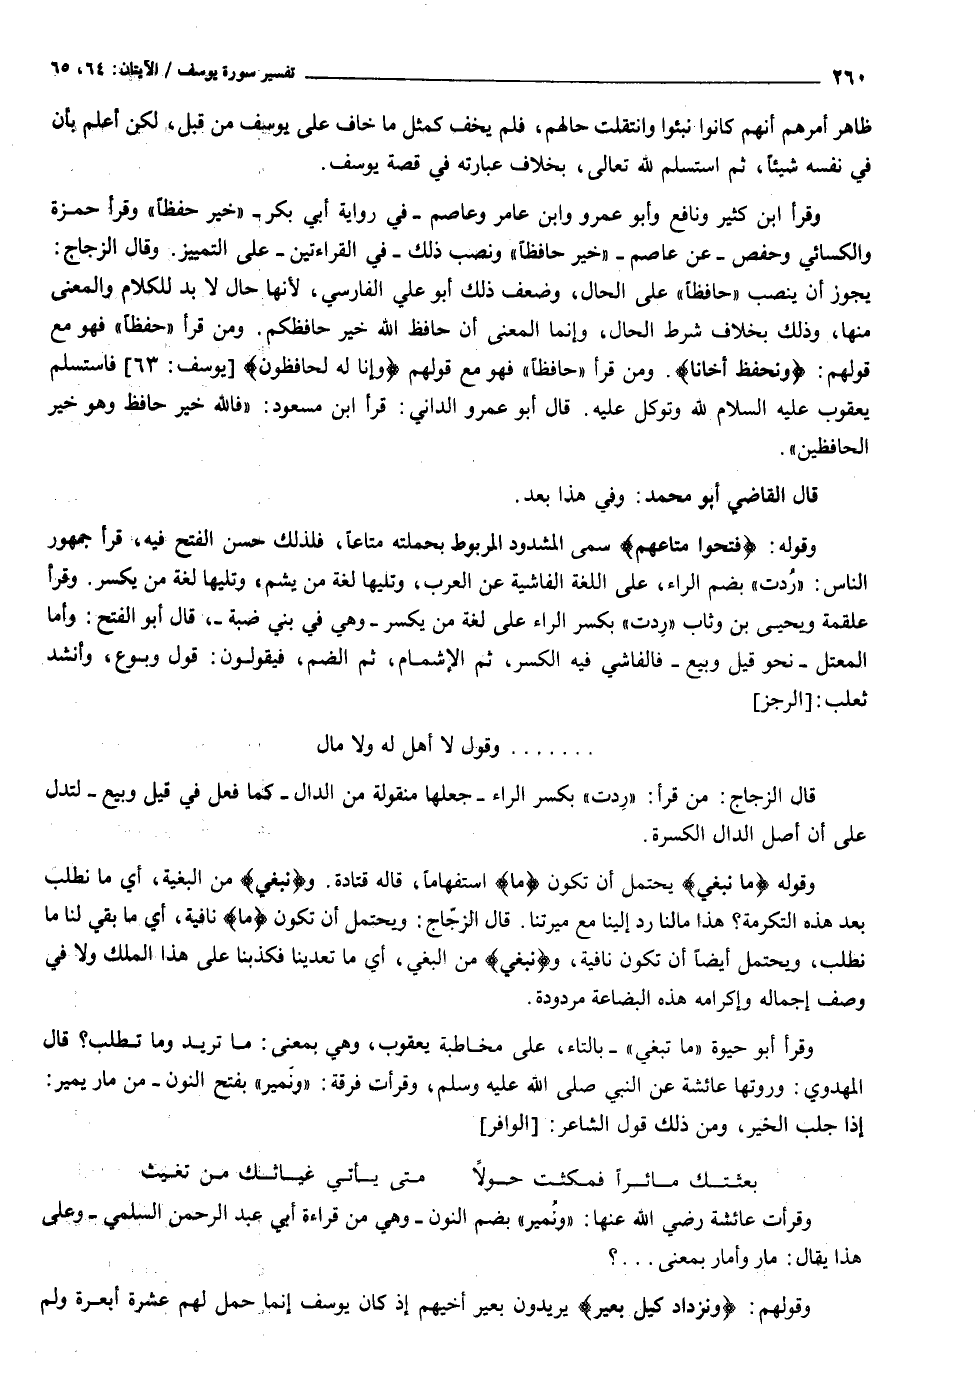 ٢٦٠ ــــــ تفسير سورة يوسف / الآيتان: ٦٤، ٦٥
ظاهر أمرهم أنهم كانوا نبئوا وانتقلت حالهم، فلم يخف كمثل ما خاف على يوسف من قبل، لكن أعلم بأن
في نفسه شيئاً، ثم استسلم لله تعالى، بخلاف عبارته في قصة يوسف.
وقرأ ابن كثير ونافع وأبو عمرو وابن عامر وعاصم ـ في رواية أبي بكر ـ «خير حفظاً» وقرأ حمزة
والكسائي وحفص ـ عن عاصم ـ «خير حافظاً» ونصب ذلك ـ في القراءتين ـ على التمييز. وقال الزجاج:
يجوز أن ينصب «حافظاً» على الحال، وضعف ذلك أبو علي الفارسي، لأنها حال لا بد للكلام والمعنى
منها، وذلك بخلاف شرط الحال، وإنما المعنى أن حافظ الله خير حافظكم. ومن قرأ «حفظاً» فهو مع
قولهم: ﴿ونحفظ أخانا﴾. ومن قرأ «حافظاً» فهو مع قولهم ﴿وإنا له لحافظون﴾ [يوسف: ٦٣] فاستسلم
يعقوب عليه السلام لله وتوكل عليه. قال أبو عمرو الداني: قرأ ابن مسعود: «فالله خير حافظ وهو خير
الحافظين».
قال القاضي أبو محمد: وفي هذا بعد.
وقوله: ﴿فتحوا متاعهم﴾ سمى المشدود المربوط بحملته متاعاً، فلذلك حسن الفتح فيه، قرأ جمهور
الناس: «رُدت» بضم الراء، على اللغة الفاشية عن العرب، وتليها لغة من يشم، وتليها لغة من يكسر. وقرأ
علقمة ويحيى بن وثاب «رِدت» بكسر الراء على لغة من يكسر ـ وهي في بني ضبة ـ، قال أبو الفتح: وأما
المعتل ـ نحو قيل وبيع ـ فالفاشي فيه الكسر، ثم الإشمام، ثم الضم، فيقولون: قول وبوع، وأنشد
ثعلب: [الرجز]
. . . . . . . وقول لا أهل له ولا مال
قال الزجاج: من قرأ: «رِدت» بكسر الراء ـ جعلها منقولة من الدال ـ كما فعل في قيل وبيع ـ لتدل
على أن أصل الدال الكسرة.
وقوله ﴿ما نبغي﴾ يحتمل أن تكون ﴿ما﴾ استفهاماً، قاله قتادة. و﴿نبغي﴾ من البغية، أي ما نطلب
بعد هذه التكرمة؟ هذا مالنا رد إلينا مع ميرتنا. قال الزجّاج: ويحتمل أن تكون ﴿ما﴾ نافية، أي ما بقي لنا ما
نطلب، ويحتمل أيضاً أن تكون نافية، و﴿نبغي﴾ من البغي، أي ما تعدينا فكذبنا على هذا الملك ولا في
وصف إجماله وإكرامه هذه البضاعة مردودة.
وقرأ أبو حيوة «ما تبغي» ـ بالتاء، على مخاطبة يعقوب، وهي بمعنى: ما تريد وما تطلب؟ قال
المهدوي: وروتها عائشة عن النبي صلى الله عليه وسلم، وقرأت فرقة: «ونَمير» بفتح النون ـ من مار يمير:
إذا جلب الخير، ومن ذلك قول الشاعر: [الوافر]
بعثتك مائراً فمكثت حولاً متى يأتي غياثك من تغيث
وقرأت عائشة رضي الله عنها: «ونُمير» بضم النون ـ وهي من قراءة أبي عبد الرحمن السلمي ـ وعلى
هذا يقال: مار وأمار بمعنى. . . ؟
وقولهم: ﴿ونزداد كيل بعير﴾ يريدون بعير أخيهم إذ كان يوسف إنما حمل لهم عشرة أبعرة ولم